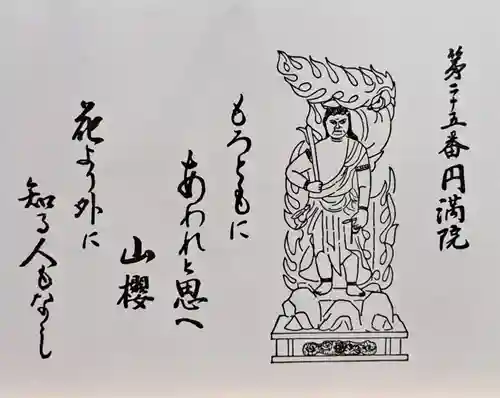 第二十五番円満院
もろともに
あわれと思へ
山櫻
花より外に
知る人もなし